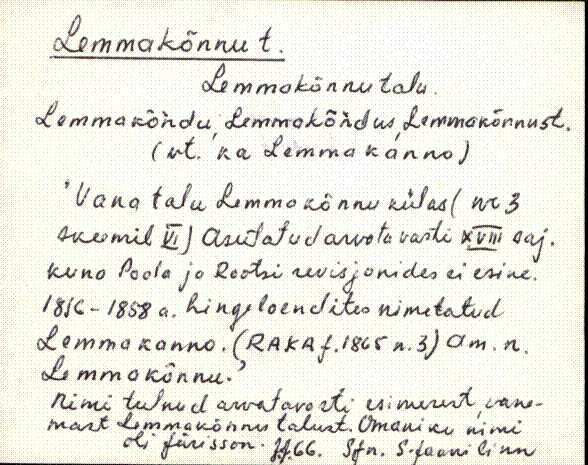 Lemmakõnnu t.
Lemmakõnnu talu.
Lemmakõndu, Lemmakõndus, Lemmakõnnust.
(vt. ka Lemmakánno)
"Vana talu Lemmakõnnu külas (nr 3
skeemil VI) Asutatud arvatavasti XVIII saj.
kuna Poola ja Rootsi revisjonides ei esine.
1816-1858 a. hingeloendites nimetatud
Lemmakanno. (RAKA f. 1865 n. 3) Am. n.
Lemmakõnnu."
Nimi tulnud arvatavasti esimesest, vane-
mast Lemmakõnnu talust. Omaniku nimi
oli Jürisson. 66. Sfn. S-Jaani linn